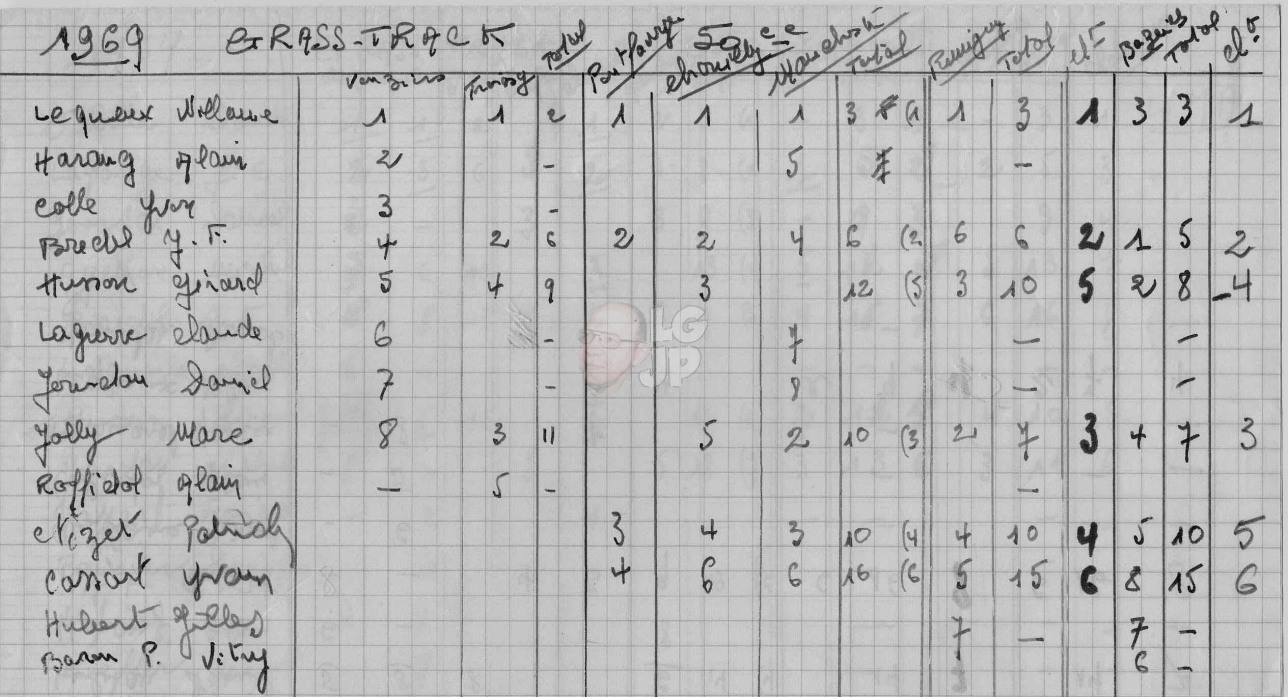 1969 GRASS-TRACK Total 50cc Total Total Clt Total Clt
Vouziers Troissy Chouilly Rumigny
Lequeux 1 1 2 1 1 1 3 (1 1 3 1 3 3 1
Harang Alain 2 - 5 7 -
Colle Yvon 3 -
Bredel J.F. 4 2 6 2 2 4 6 (2 6 6 2 1 5 2
Husson Gérard 5 4 9 3 12 (5 3 10 5 2 8 -4
Claude 6 - 7 - -
Jourdan Daniel 7 - 8 - -
Jolly Marc 8 3 11 5 2 10 (3 2 7 3 4 7 3
Alain — 5 - -
Patrick 3 4 3 10 (4 4 10 4 5 10 5
Cossart 4 6 6 16 (6 5 15 6 8 15 6
Hubert Gilles 7 — 7 -
P. Vitry 6 -
LG
JP